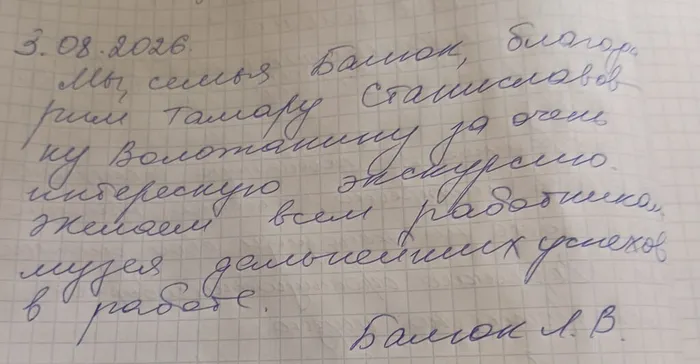 3.08.2026.
Мы, семья Балюк, благода-
рим Тамару Станиславов
ну Воложанину за очень
интересную экскурсию.
Желаем всем работникам
музея дальнейших успехов
в работе.
Балюк Л. В.